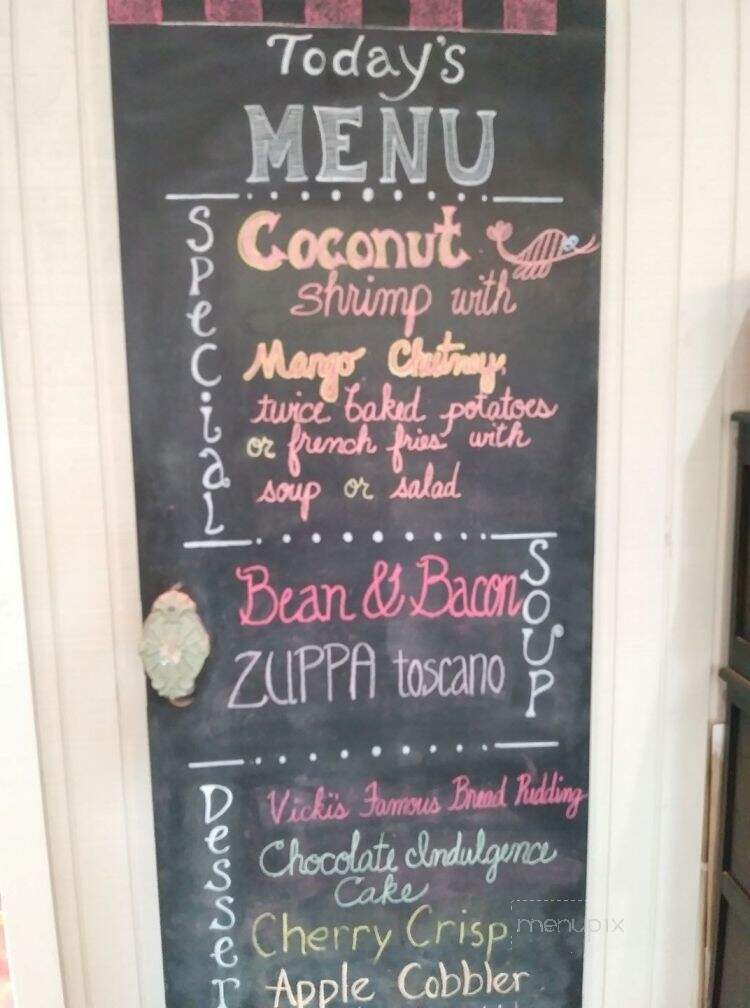 Today's
MENU
SPeCiaL
Coconut
shrimp with
Mango Chutney
twice baked potatoes
or french fries with
soup or salad
SOUP
Bean & Bacon
ZUPPA toscano
Desser
Vicki's Famous Bread Pudding
Chocolate Indulgence
Cake
Cherry Crisp
Apple Cobbler
menupix